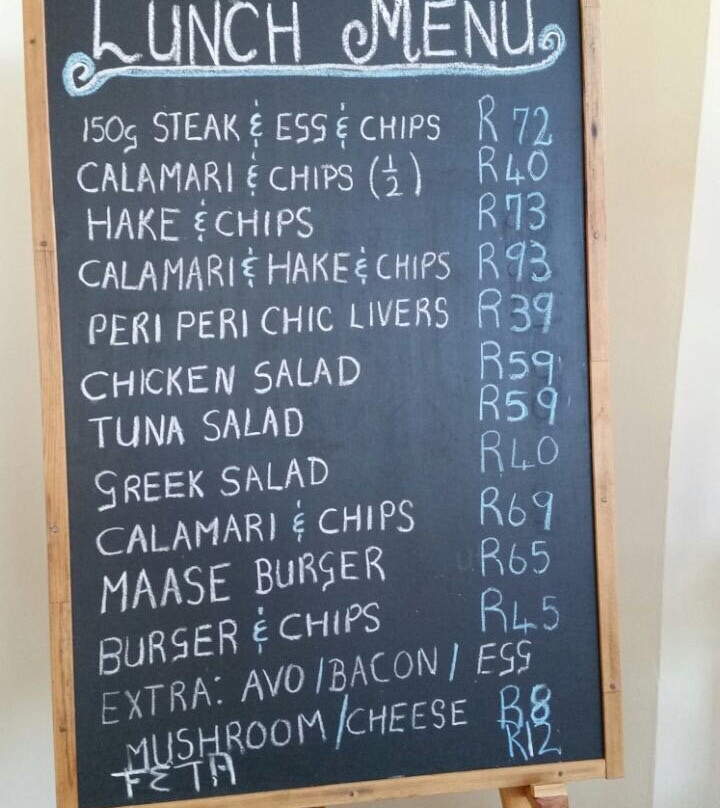 LUNCH MENU
150g STEAK & EGG & CHIPS R 72
CALAMARI & CHIPS (½) R40
HAKE & CHIPS R73
CALAMARI & HAKE & CHIPS R93
PERI PERI CHIC LIVERS R39
CHICKEN SALAD R59
TUNA SALAD R59
GREEK SALAD R40
CALAMARI & CHIPS R69
MAASE BURGER R65
BURGER & CHIPS R45
EXTRA: AVO/BACON/EGG
MUSHROOM/CHEESE R8
FETA R12